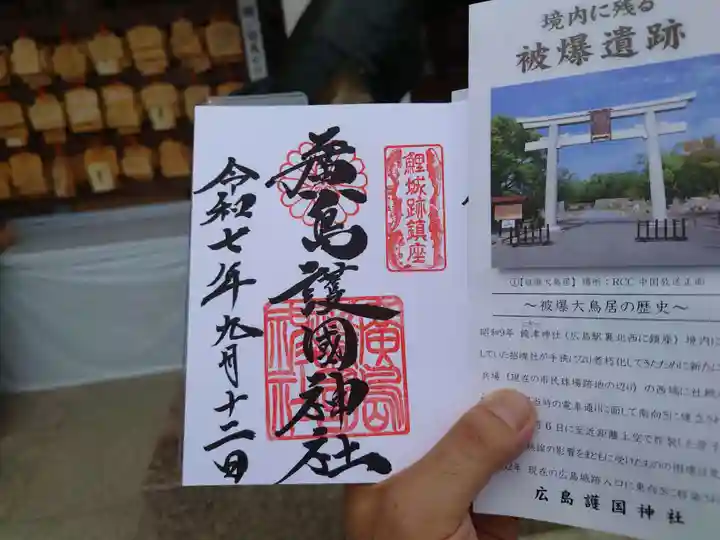 廣島護國神社
令和七年九月十二日
鯉城跡鎮座
廣島
境内に残る
被爆遺跡
①【被爆大鳥居】場所：RCC 中国放送正面
～被爆大鳥居の歴史～
昭和9年 饒津神社（広島駅裏北西に鎮座）境内に
していた招魂社が手狭になり老朽化してきたために新たに
兵場（現在の市民球場跡地の辺り）の西端に社殿
当時の電車通りに面して南向きに建立さ
6日に至近距離上空で炸裂した原子
線の影響をまともに受けたものの崩壊は
年 現在の広島城跡入口に東向きに移築さ
広島護国神社